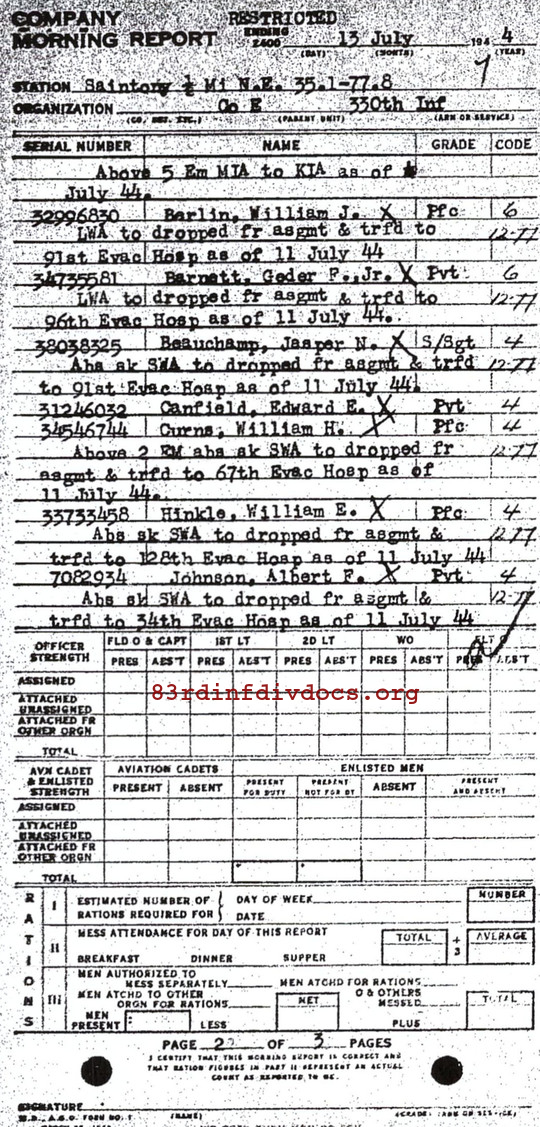 COMPANY RESTRICTED
MORNING REPORT ENDING 2400 13 July 194 4
(DAY) (MONTH) (YEAR)
STATION Saintony ½ Mi N.E. 35.1-77.8
ORGANIZATION Co E 330th Inf
(CO., DET., ETC.) (PARENT UNIT) (ARM OR SERVICE)
SERIAL NUMBER NAME GRADE CODE
Above 5 Em MIA to KIA as of
July 44.
32996830 Barlin, William J. X Pfc 6
LWA to dropped fr asgmt & trfd to 12-77
91st Evac Hosp as of 11 July 44
34735581 Barnett, Geder F.,Jr. X Pvt 6
LWA to dropped fr asgmt & trfd to 12-77
96th Evac Hosp as of 11 July 44.
38038325 Beauchamp, Jasper N. X S/Sgt 4
Abs sk SWA to dropped fr asgmt & trfd 12-77
to 91st Evac Hosp as of 11 July 44.
31246032 Canfield, Edward E. X Pvt 4
34546744 Curns, William H. X Pfc 4
Above 2 EM abs sk SWA to dropped fr 12-77
asgmt & trfd to 67th Evac Hosp as of
11 July 44.
33733458 Hinkle, William E. X Pfc 4
Abs sk SWA to dropped fr asgmt & 12-77
trfd to 128th Evac Hosp as of 11 July 44
7082934 Johnson, Albert F. X Pvt 4
Abs sk SWA to dropped fr asgmt & 12-77
trfd to 34th Evac Hosp as of 11 July 44
OFFICER STRENGTH FLD O & CAPT 1ST LT 2D LT WO FLT O
PRES ABS'T PRES ABS'T PRES ABS'T PRES ABS'T PRES ABS'T
ASSIGNED
83rdinfdivdocs.org
ATTACHED UNASSIGNED
ATTACHED FR OTHER ORGN
TOTAL
AVN CADET & ENLISTED STRENGTH AVIATION CADETS ENLISTED MEN
PRESENT ABSENT PRESENT FOR DUTY PRESENT NOT FOR DY ABSENT PRESENT AND ABSENT
ASSIGNED
ATTACHED UNASSIGNED
ATTACHED FR OTHER ORGN
TOTAL
RATIONS
I ESTIMATED NUMBER OF RATIONS REQUIRED FOR DAY OF WEEK DATE NUMBER
II MESS ATTENDANCE FOR DAY OF THIS REPORT TOTAL ÷ 3 AVERAGE
BREAKFAST DINNER SUPPER
III MEN AUTHORIZED TO MESS SEPARATELY MEN ATCHD FOR RATIONS
MEN ATCHD TO OTHER ORGN FOR RATIONS NET O & OTHERS MESSED TOTAL
MEN PRESENT LESS PLUS
PAGE 2 OF 3 PAGES
I CERTIFY THAT THIS MORNING REPORT IS CORRECT AND
THAT RATION FIGURES IN PART II REPRESENT AN ACTUAL
COUNT AS REPORTED TO ME.
SIGNATURE
W.D., A.G.O. FORM NO. 1 (NAME) (GRADE) (ARM OR SERVICE)